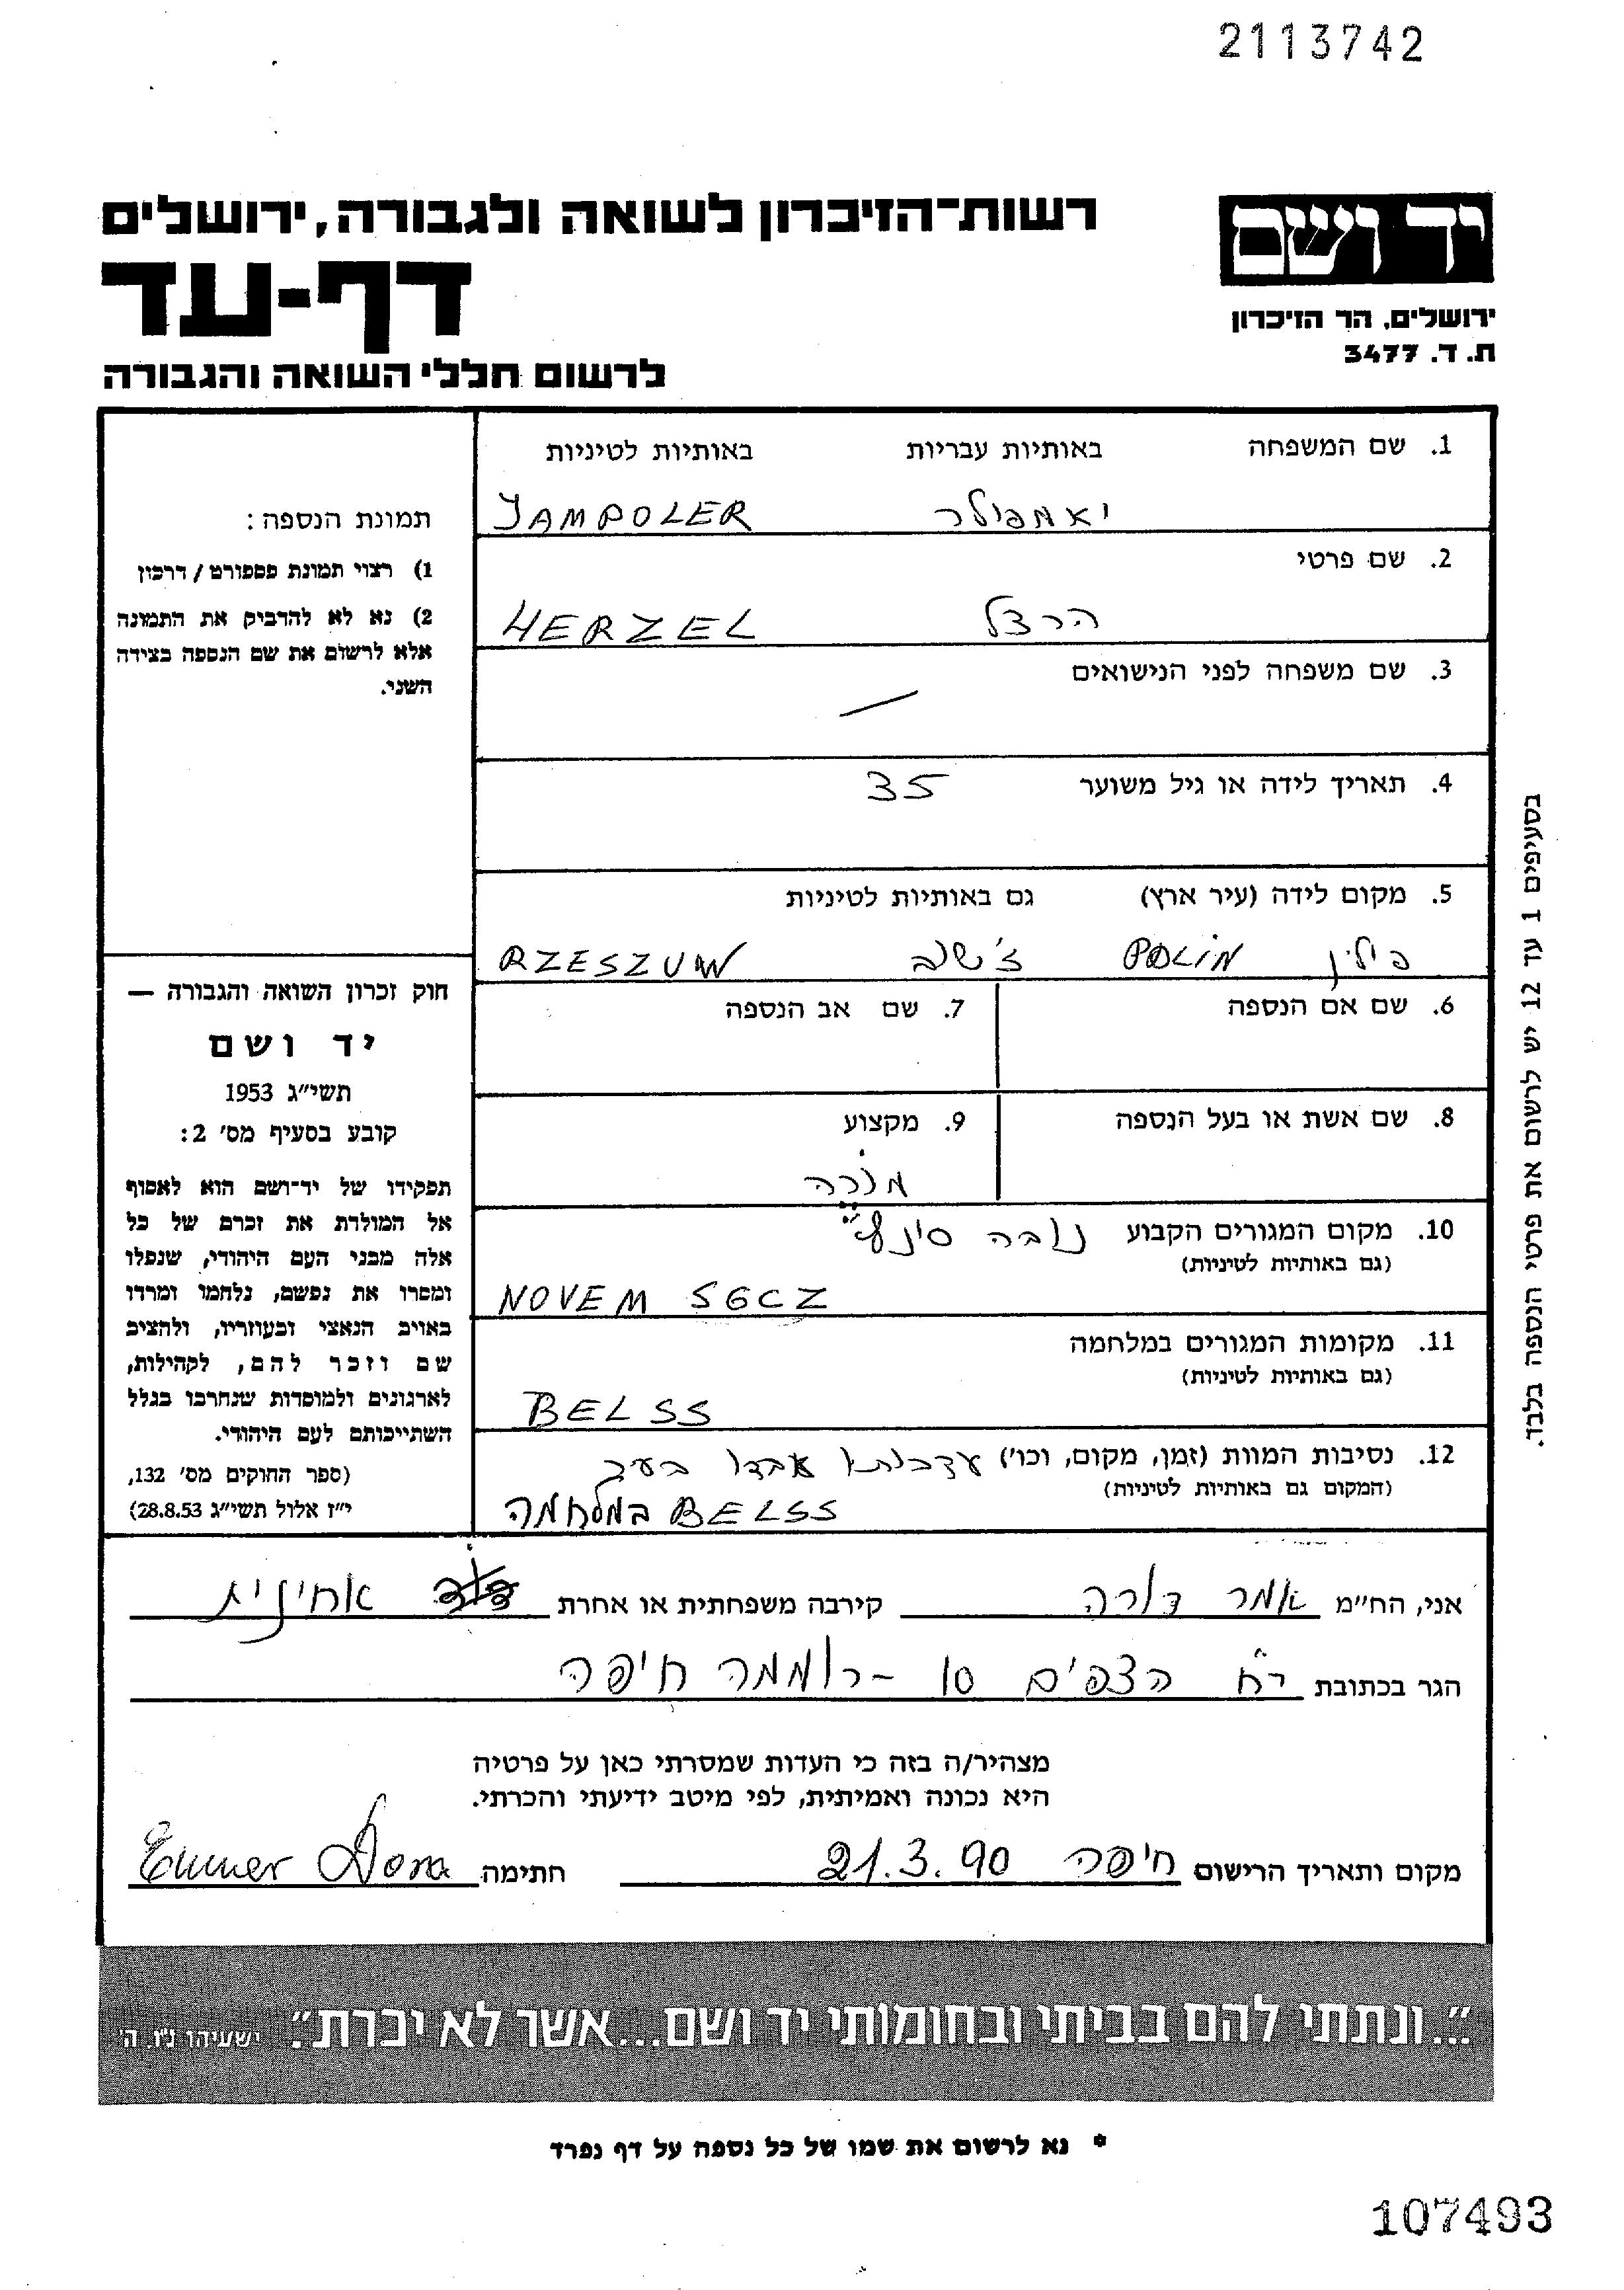 2113742
רשות-הזיכרון לשואה ולגבורה, ירושלים
דף-עד
לרשום חללי השואה והגבורה
יד ושם
ירושלים, הר הזיכרון
ת. ד. 3477
1. שם המשפחה באותיות עבריות באותיות לטיניות
יאמפולר JAMPOLER
2. שם פרטי
הרצל HERZEL
3. שם משפחה לפני הנישואים
—
4. תאריך לידה או גיל משוער 35
5. מקום לידה (עיר ארץ) גם באותיות לטיניות
פולין POLIN ז'שוב RZESZUW
6. שם אם הנספה
7. שם אב הנספה
8. שם אשת או בעל הנספה
9. מקצוע
מורה
10. מקום המגורים הקבוע נובה
(גם באותיות לטיניות)
NOVEM SGCZ
11. מקומות המגורים במלחמה
(גם באותיות לטיניות)
BELSS
12. נסיבות המוות (זמן, מקום, וכו') אבדו בעיר
(המקום גם באותיות לטיניות)
BELSS במלחמה
תמונת הנספה:
1) רצוי תמונת פספורט / דרכון
2) נא לא להדביק את התמונה
אלא לרשום את שם הנספה בצידה
השני.
חוק זכרון השואה והגבורה —
יד ושם
תשי"ג 1953
קובע בסעיף מס' 2:
תפקידו של יד-ושם הוא לאסוף
אל המולדת את זכרם של כל
אלה מבני העם היהודי, שנפלו
ומסרו את נפשם, נלחמו ומרדו
באויב הנאצי ובעוזריו, ולהציב
שם וזכר להם, לקהילות,
לארגונים ולמוסדות שנחרבו בגלל
השתייכותם לעם היהודי.
(ספר החוקים מס' 132,
י"ז אלול תשי"ג 28.8.53)
בסעיפים 1 עד 12 יש לרשום את פרטי הנספה בלבד.
אני, הח"מ אמר דורה קירבה משפחתית או אחרת אחינית
הגר בכתובת רח הצפים 10 - רוממה חיפה
מצהיר/ה בזה כי העדות שמסרתי כאן על פרטיה
היא נכונה ואמיתית, לפי מיטב ידיעתי והכרתי.
מקום ותאריך הרישום חיפה 21.3.90 חתימה Emmer Dora
"...ונתתי להם בביתי ובחומותי יד ושם...אשר לא יכרת". ישעיהו נ"ו, ה'
* נא לרשום את שמו של כל נספה על דף נפרד
107493